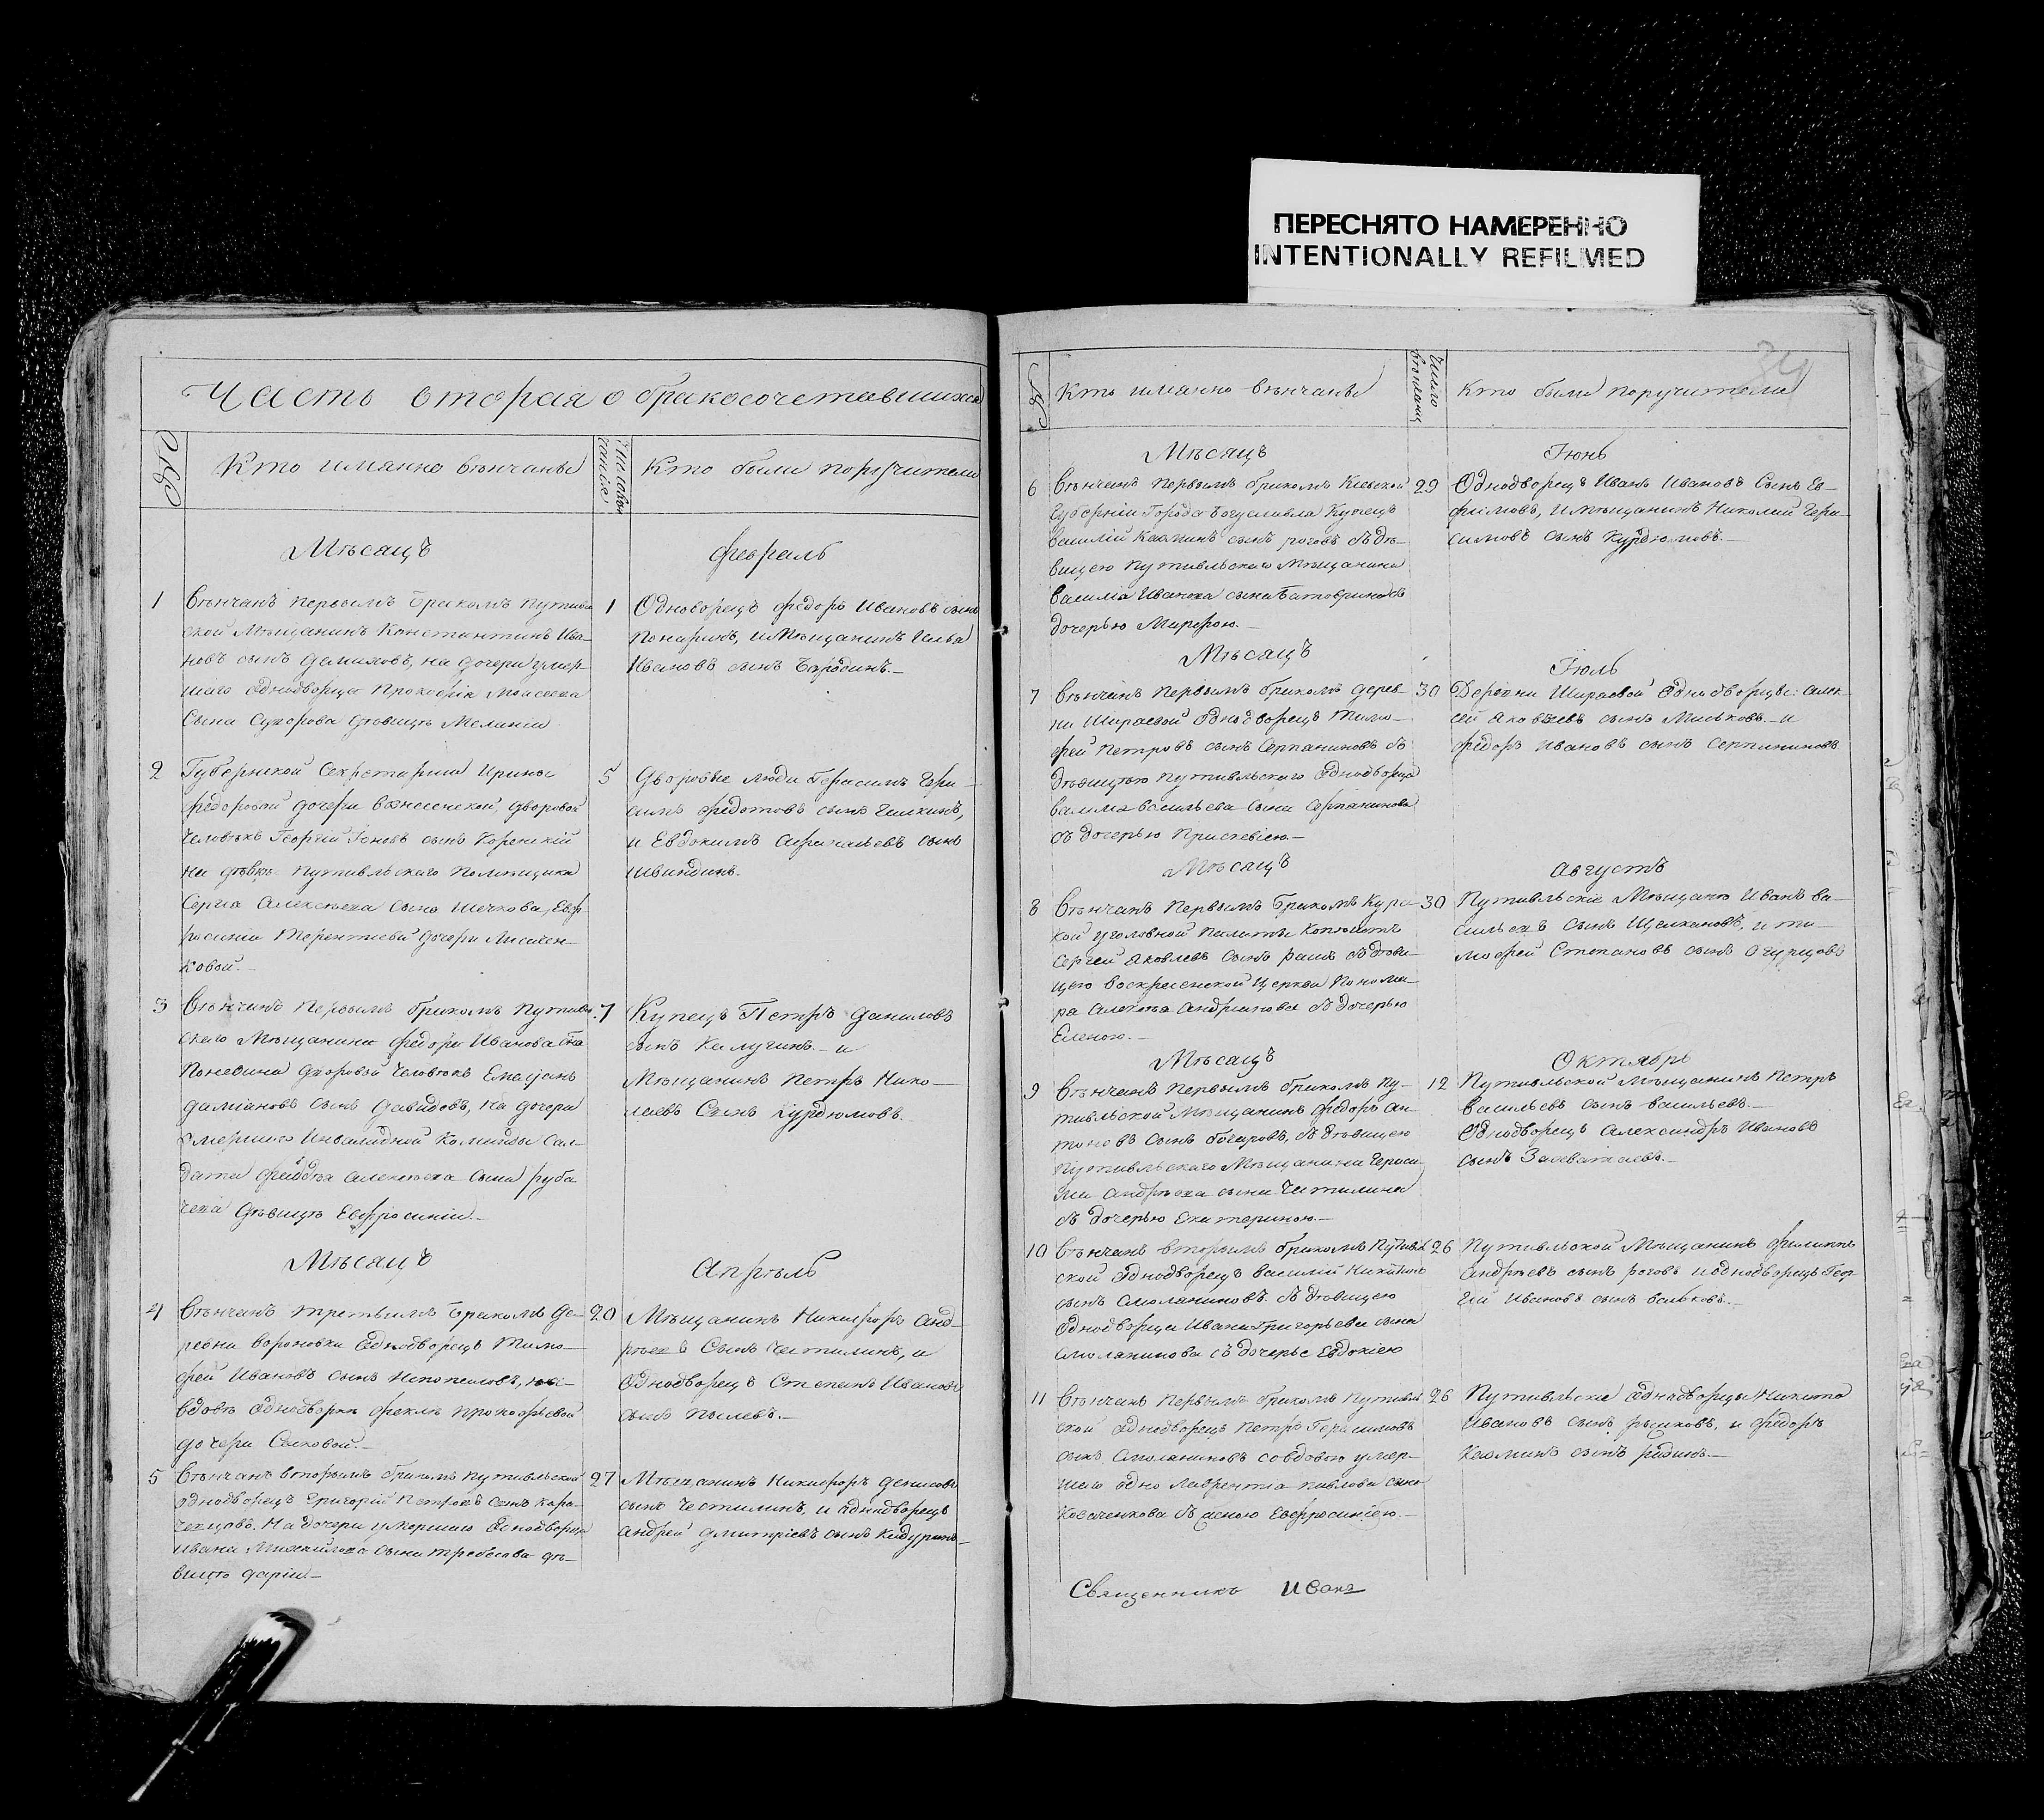 ПЕРЕСНЯТО НАМЕРЕННО
INTENTIONALLY REFILMED
Часть вторая о бракосочетавшихся
№
Кто имянно вѣнчаны
Кто были поручители
Мѣсяцъ
Февраль
1
Вѣнчанъ первымъ бракомъ Путивль
ской Мѣщанинъ Константинъ Ива-
новъ сынъ на дочери умер-
шаго Однодворца Прокофія Моисеева
Сына Сухорова дѣвицѣ Меланіи
1
Одноворецъ Федоръ Ивановъ сынъ
Понаринъ, и Мѣщанинъ
Ивановъ сынъ Бородинъ.-
2
Губернской Секретарши Ирины
Федоровой дочери Вознесенской, дворовой
человѣкъ Георгій Іоновъ сынъ Коренскій
на дѣвкѣ Путивльскаго Помѣщика
Сергia Алексѣева Сына Шечкова, Евф-
росиніи Терентиевой дочери
ковой.-
5
Дворовые люди Герасимъ
Федотовъ сынъ
и Евдокимъ сынъ
3
Вѣнчанъ первымъ бракомъ Путивль
скаго Мѣщанина Федора Иванова сна
дворовой человѣкъ Емельянъ
Даміановъ сынъ Давидовъ, на дочери
умершаго Инвалидной Команды Сал-
дата Алексѣева Сына Руба
чева дѣвицѣ Евфросиніи.-
7
Купецъ Петръ Даниловъ
сынъ Калугинъ.- и
Мѣщанинъ Петръ Нико-
лаевъ Сынъ Курдюмовъ.
Мѣсяцъ
Апрѣль
4
Вѣнчанъ третьимъ бракомъ де-
ревни Вороновки Однодворецъ Тимо-
фей Ивановъ сынъ на
вдовѣ Однодворкѣ Феклѣ Прокофьевой
дочери Сысковой.-
20
Мѣщанинъ Никифоръ Анд-
рѣевъ Сынъ Честилинъ, и
Однодворецъ Степанъ Ивановъ
сынъ Пылевъ.-
5
Вѣнчанъ вторымъ бракомъ Путивльской
однодворецъ Григорій Петровъ сынъ Кара-
чевцовъ. На дочери умершаго Однодворца
Ивана Михайлова сына дѣ-
вицѣ Даріи.-
27
Мѣщанинъ Никифоръ Денисовъ
сынъ Честилинъ, и однодворецъ
Андрей Дмитріевъ сынъ Кидуринъ-
№
Кто имянно вѣнчаны
Число
Кто были поручители
34
Мѣсяцъ
Іюнь
6
Вѣнчанъ первымъ бракомъ Кіевской
Губерніи Города Богуславля Купецъ
Василій Козминъ сынъ Роговъ съ дѣ-
вицею Путивльскаго Мѣщанина
Василія Иванова сына съ
дочерью Марфою.-
29
Однодворецъ Иванъ Ивановъ Сынъ Ев-
фимовъ, и мѣщанинъ Николай Гера-
симовъ сынъ Курдюмовъ.-
Мѣсяцъ
Іюль
7
Вѣнчанъ первымъ бракомъ дерев-
ни Ширяевой однодворецъ Тимо-
фей Петровъ сынъ Серпаниновъ съ
дѣвицѣю Путивльскаго Однодворца
Васильева сына Серпанинова
съ дочерью Прасковіею.-
30
Деревни Ширяевой Однодворцы: Алек-
сей Яковлевъ сынъ Миськовъ.- и
Федоръ Ивановъ сынъ Серпаниновъ
Мѣсяцъ
Августъ
8
Вѣнчанъ первымъ бракомъ Курс-
кой уголовной Палаты Копіистъ
Сергей Яковлевъ сынъ съ дѣви-
цею Воскресенской Церкви Понома-
ра Андриянова съ дочерью
Еленою.-
30
Путивльскіе Мѣщане Иванъ Ва-
сильевъ сынъ Щелкановъ, и Ти-
мофей Степановъ сынъ Огурцовъ
Мѣсяцъ
Октябрь
9
Вѣнчанъ первымъ бракомъ Пу-
тивльской Мѣщанинъ Федоръ Ан-
тоновъ сынъ съ дѣвицею
Путивльскаго Мѣщанина Гераси-
ма Андрѣева сына Честилина
съ дочерью Екатериною.-
12
Путивльской Мѣщанинъ Петръ
Васильевъ сынъ Васильевъ.-
Однодворецъ Александръ Ивановъ
сынъ
10
Вѣнчанъ вторымъ бракомъ Путивль
ской Однодворецъ Василій Никитинъ
сынъ Смоляниновъ съ дѣвицею
Однодворца Ивана Григорьева сына
Смолянинова съ дочерью Евдокіею
26
Путивльской Мѣщанинъ Филиппъ
Андрѣевъ сынъ Роговъ и однодворецъ Геор-
гій Ивановъ сынъ Волковъ.-
11
Вѣнчанъ первымъ бракомъ Путивль
ской однодворецъ Петръ Герасимовъ
сынъ Смоляниновъ со вдовою умер-
шаго одно Лаврентia Павлова сына
Косаченкова съ женою Евфросиніею.-
26
Путивльскіе Однодворцы Никита
Ивановъ сынъ Рыжковъ, и Федоръ
Козминъ сынъ Рединъ.-
Священникъ Иванъ